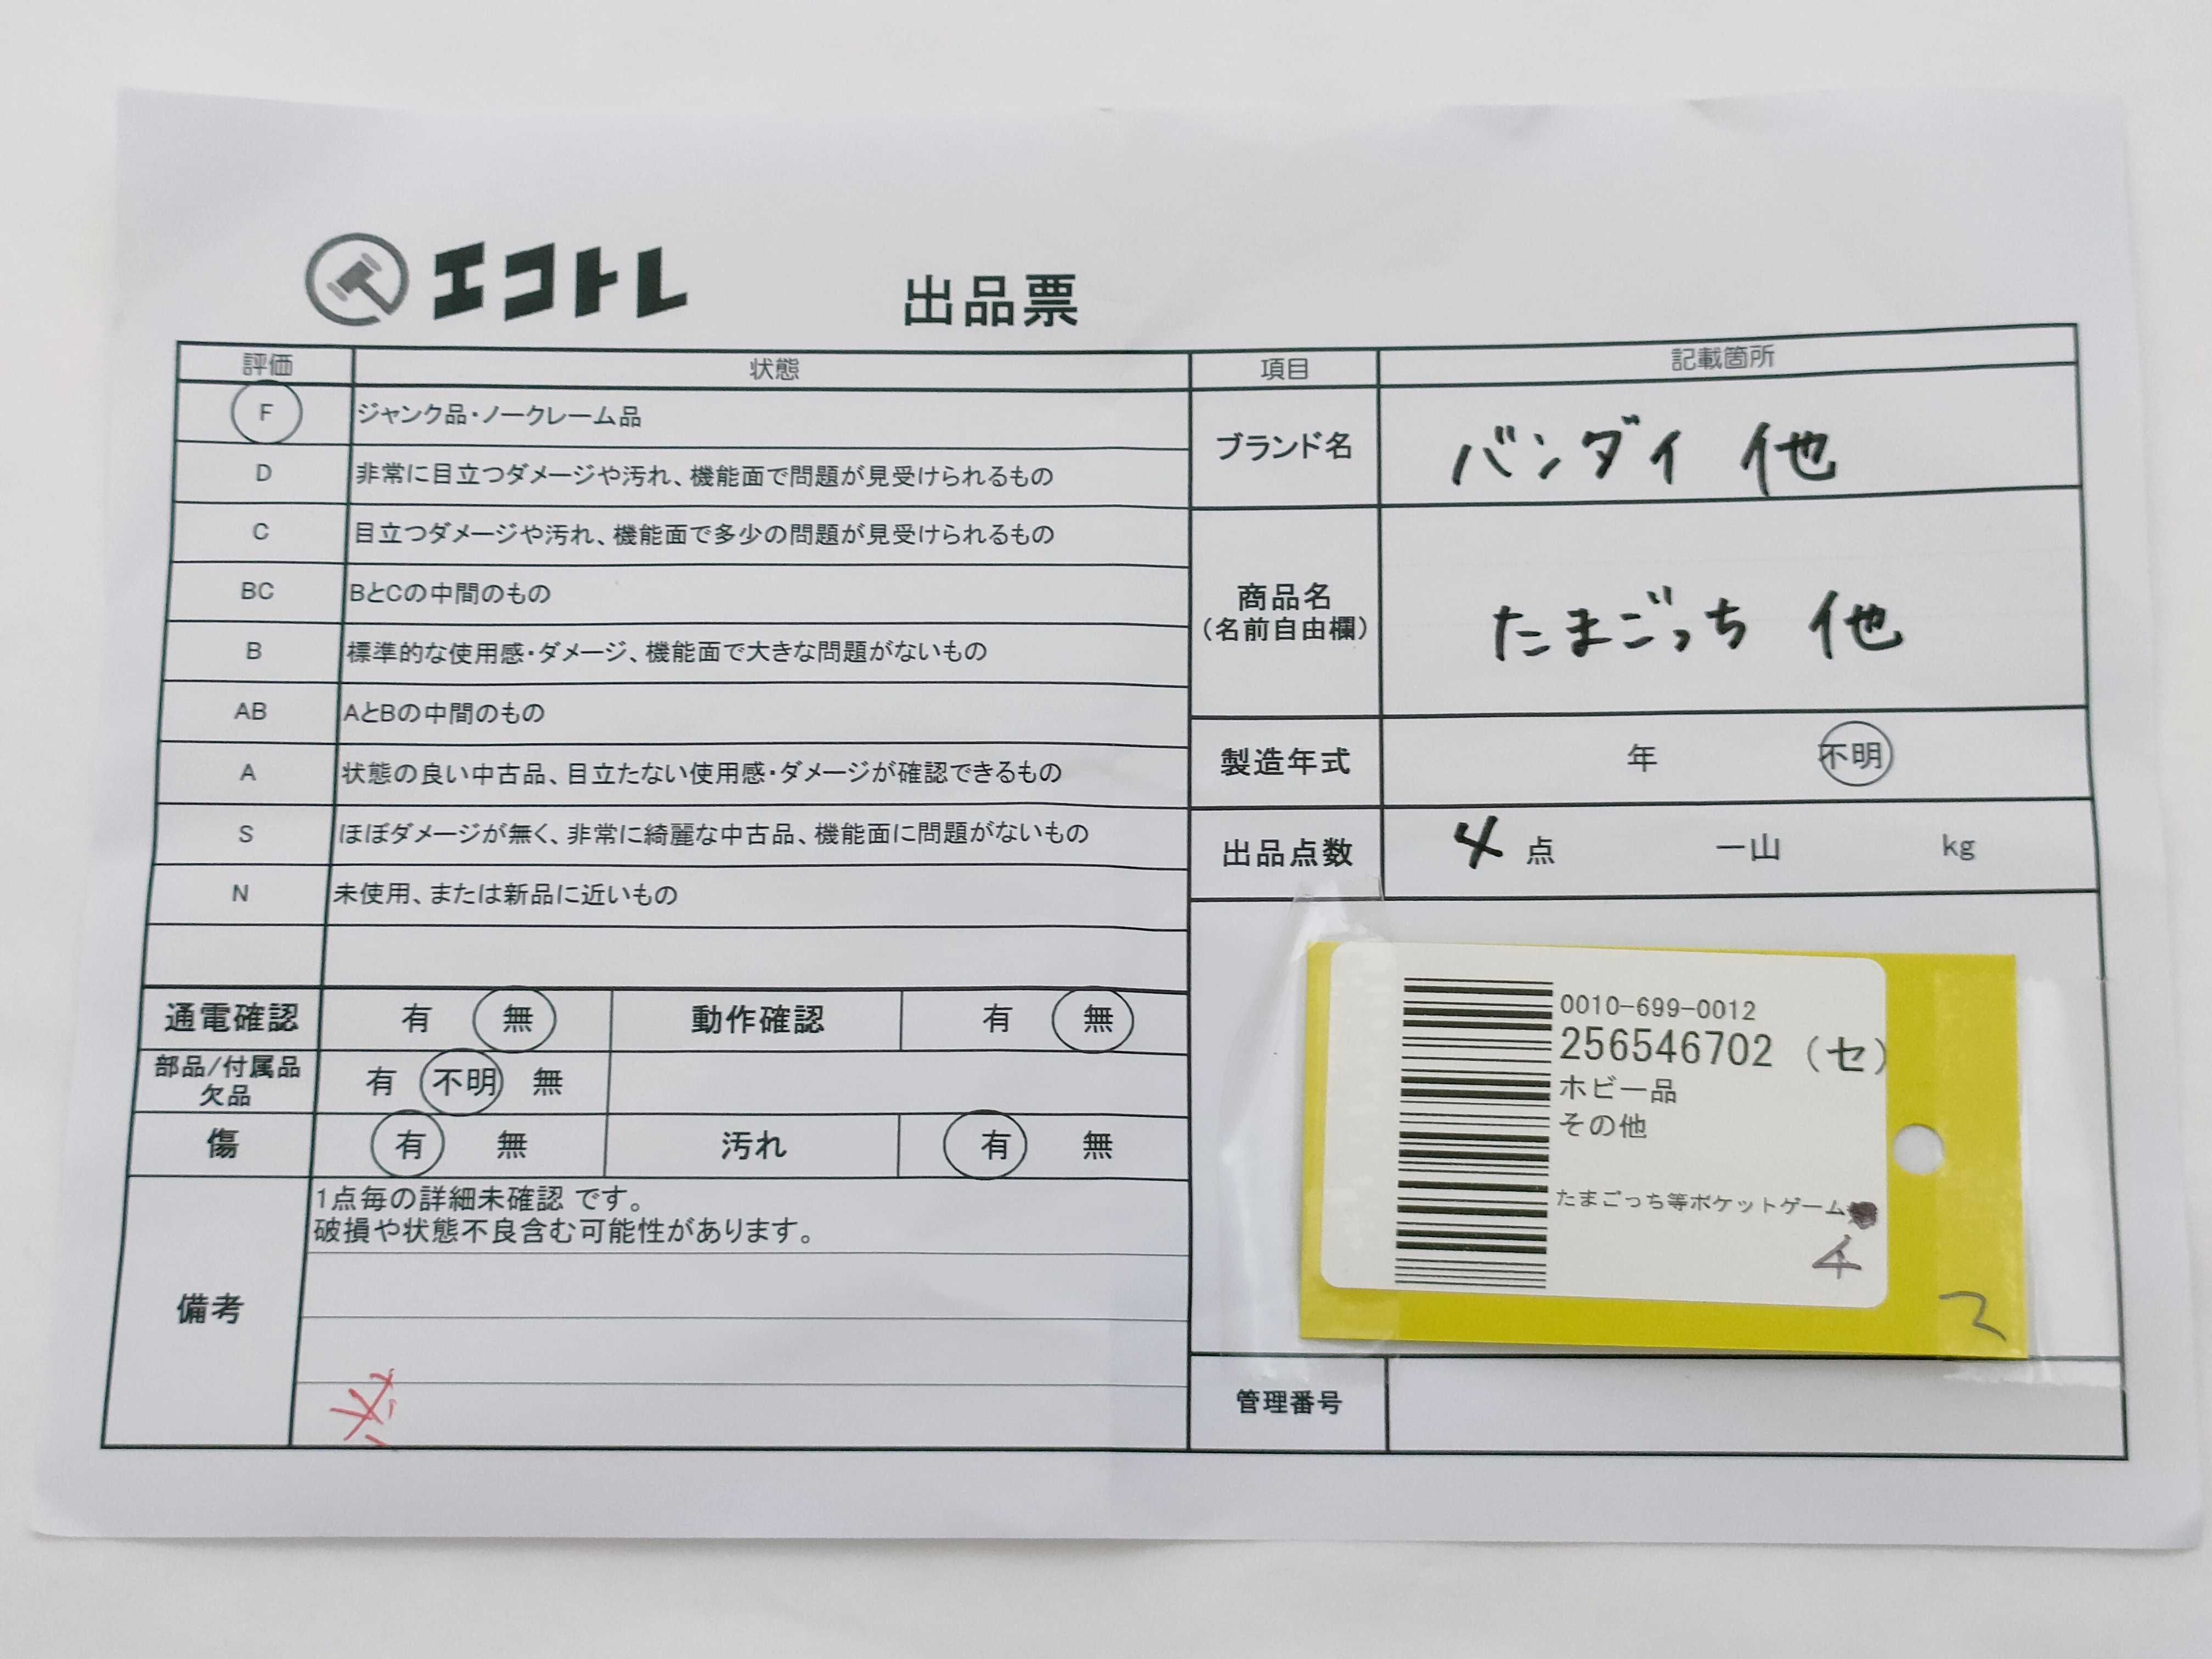 エコトレ
出品票
評価 状態 項目 記載箇所
F ジャンク品・ノークレーム品
D 非常に目立つダメージや汚れ、機能面で問題が見受けられるもの
C 目立つダメージや汚れ、機能面で多少の問題が見受けられるもの
BC BとCの中間のもの
B 標準的な使用感・ダメージ、機能面で大きな問題がないもの
AB AとBの中間のもの
A 状態の良い中古品、目立たない使用感・ダメージが確認できるもの
S ほぼダメージが無く、非常に綺麗な中古品、機能面に問題がないもの
N 未使用、または新品に近いもの
通電確認 有 無 動作確認 有 無
部品/付属品
欠品
有 不明 無
傷 有 無 汚れ 有 無
備考
1点毎の詳細未確認 です。
破損や状態不良含む可能性があります。
ブランド名 バンダイ 他
商品名
(名前自由欄)
たまごっち 他
製造年式 年 不明
出品点数 4 点 一山 kg
0010-699-0012
256546702 (セ)
ホビー品
その他
たまごっち等ポケットゲーム
4
管理番号